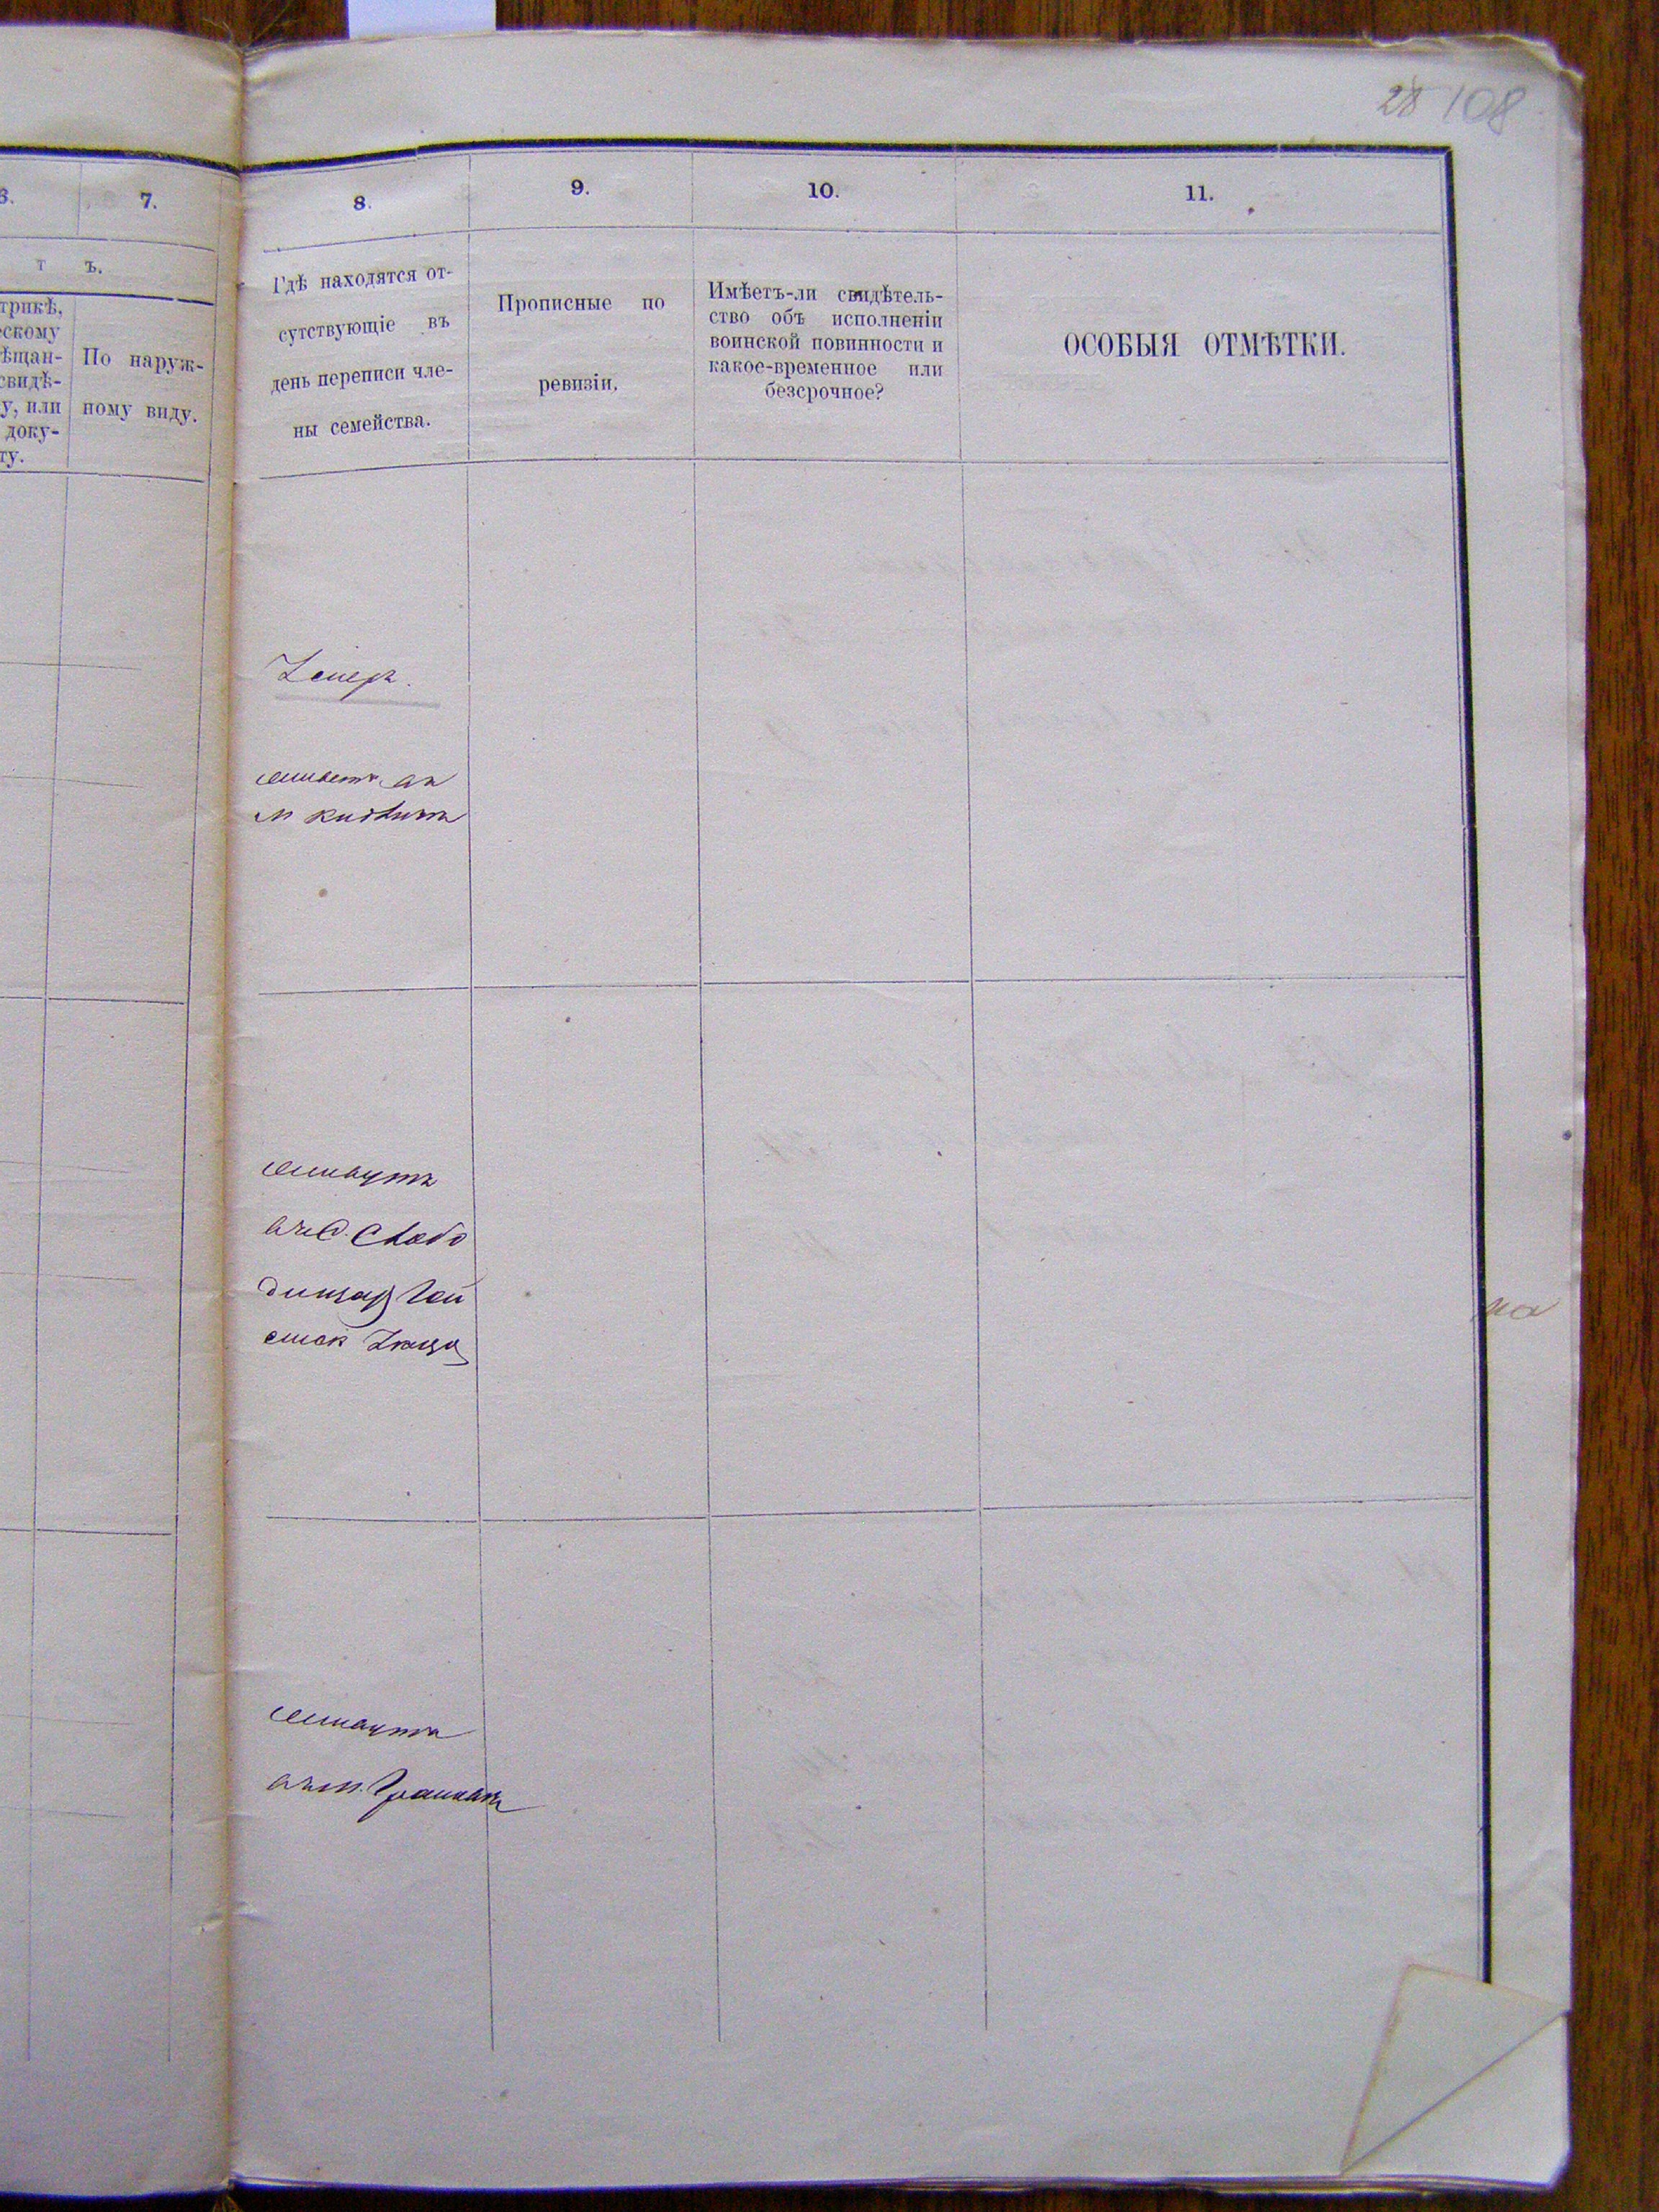 28 108
6.
7.
8.
9.
10.
11.
т ъ.
трикѣ,
ескому
ѣщан-
свидѣ-
у, или
доку-
ту.
По наруж-
ному виду.
Гдѣ находятся от-
сутствующіе въ
день переписи чле-
ны семейства.
Прописные по
ревизіи.
Имѣетъ-ли свидѣтель-
ство объ исполненіи
воинской повинности и
какое-временное или
безсрочное?
ОСОБЫЯ ОТМѢТКИ.
Умеръ.
живетъ въ
живутъ
въ С. Свобо
живутъ
въ м.
на